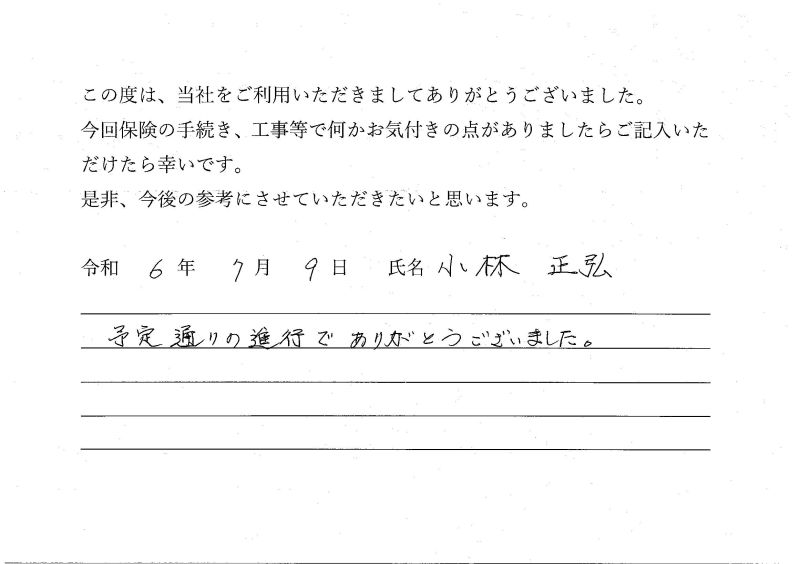 この度は、当社をご利用いただきましてありがとうございました。
今回保険の手続き、工事等で何かお気付きの点がありましたらご記入いた
だけたら幸いです。
是非、今後の参考にさせていただきたいと思います。
令和 6 年 7 月 9 日 氏名 小林 正弘
予定通りの進行でありがとうございました。